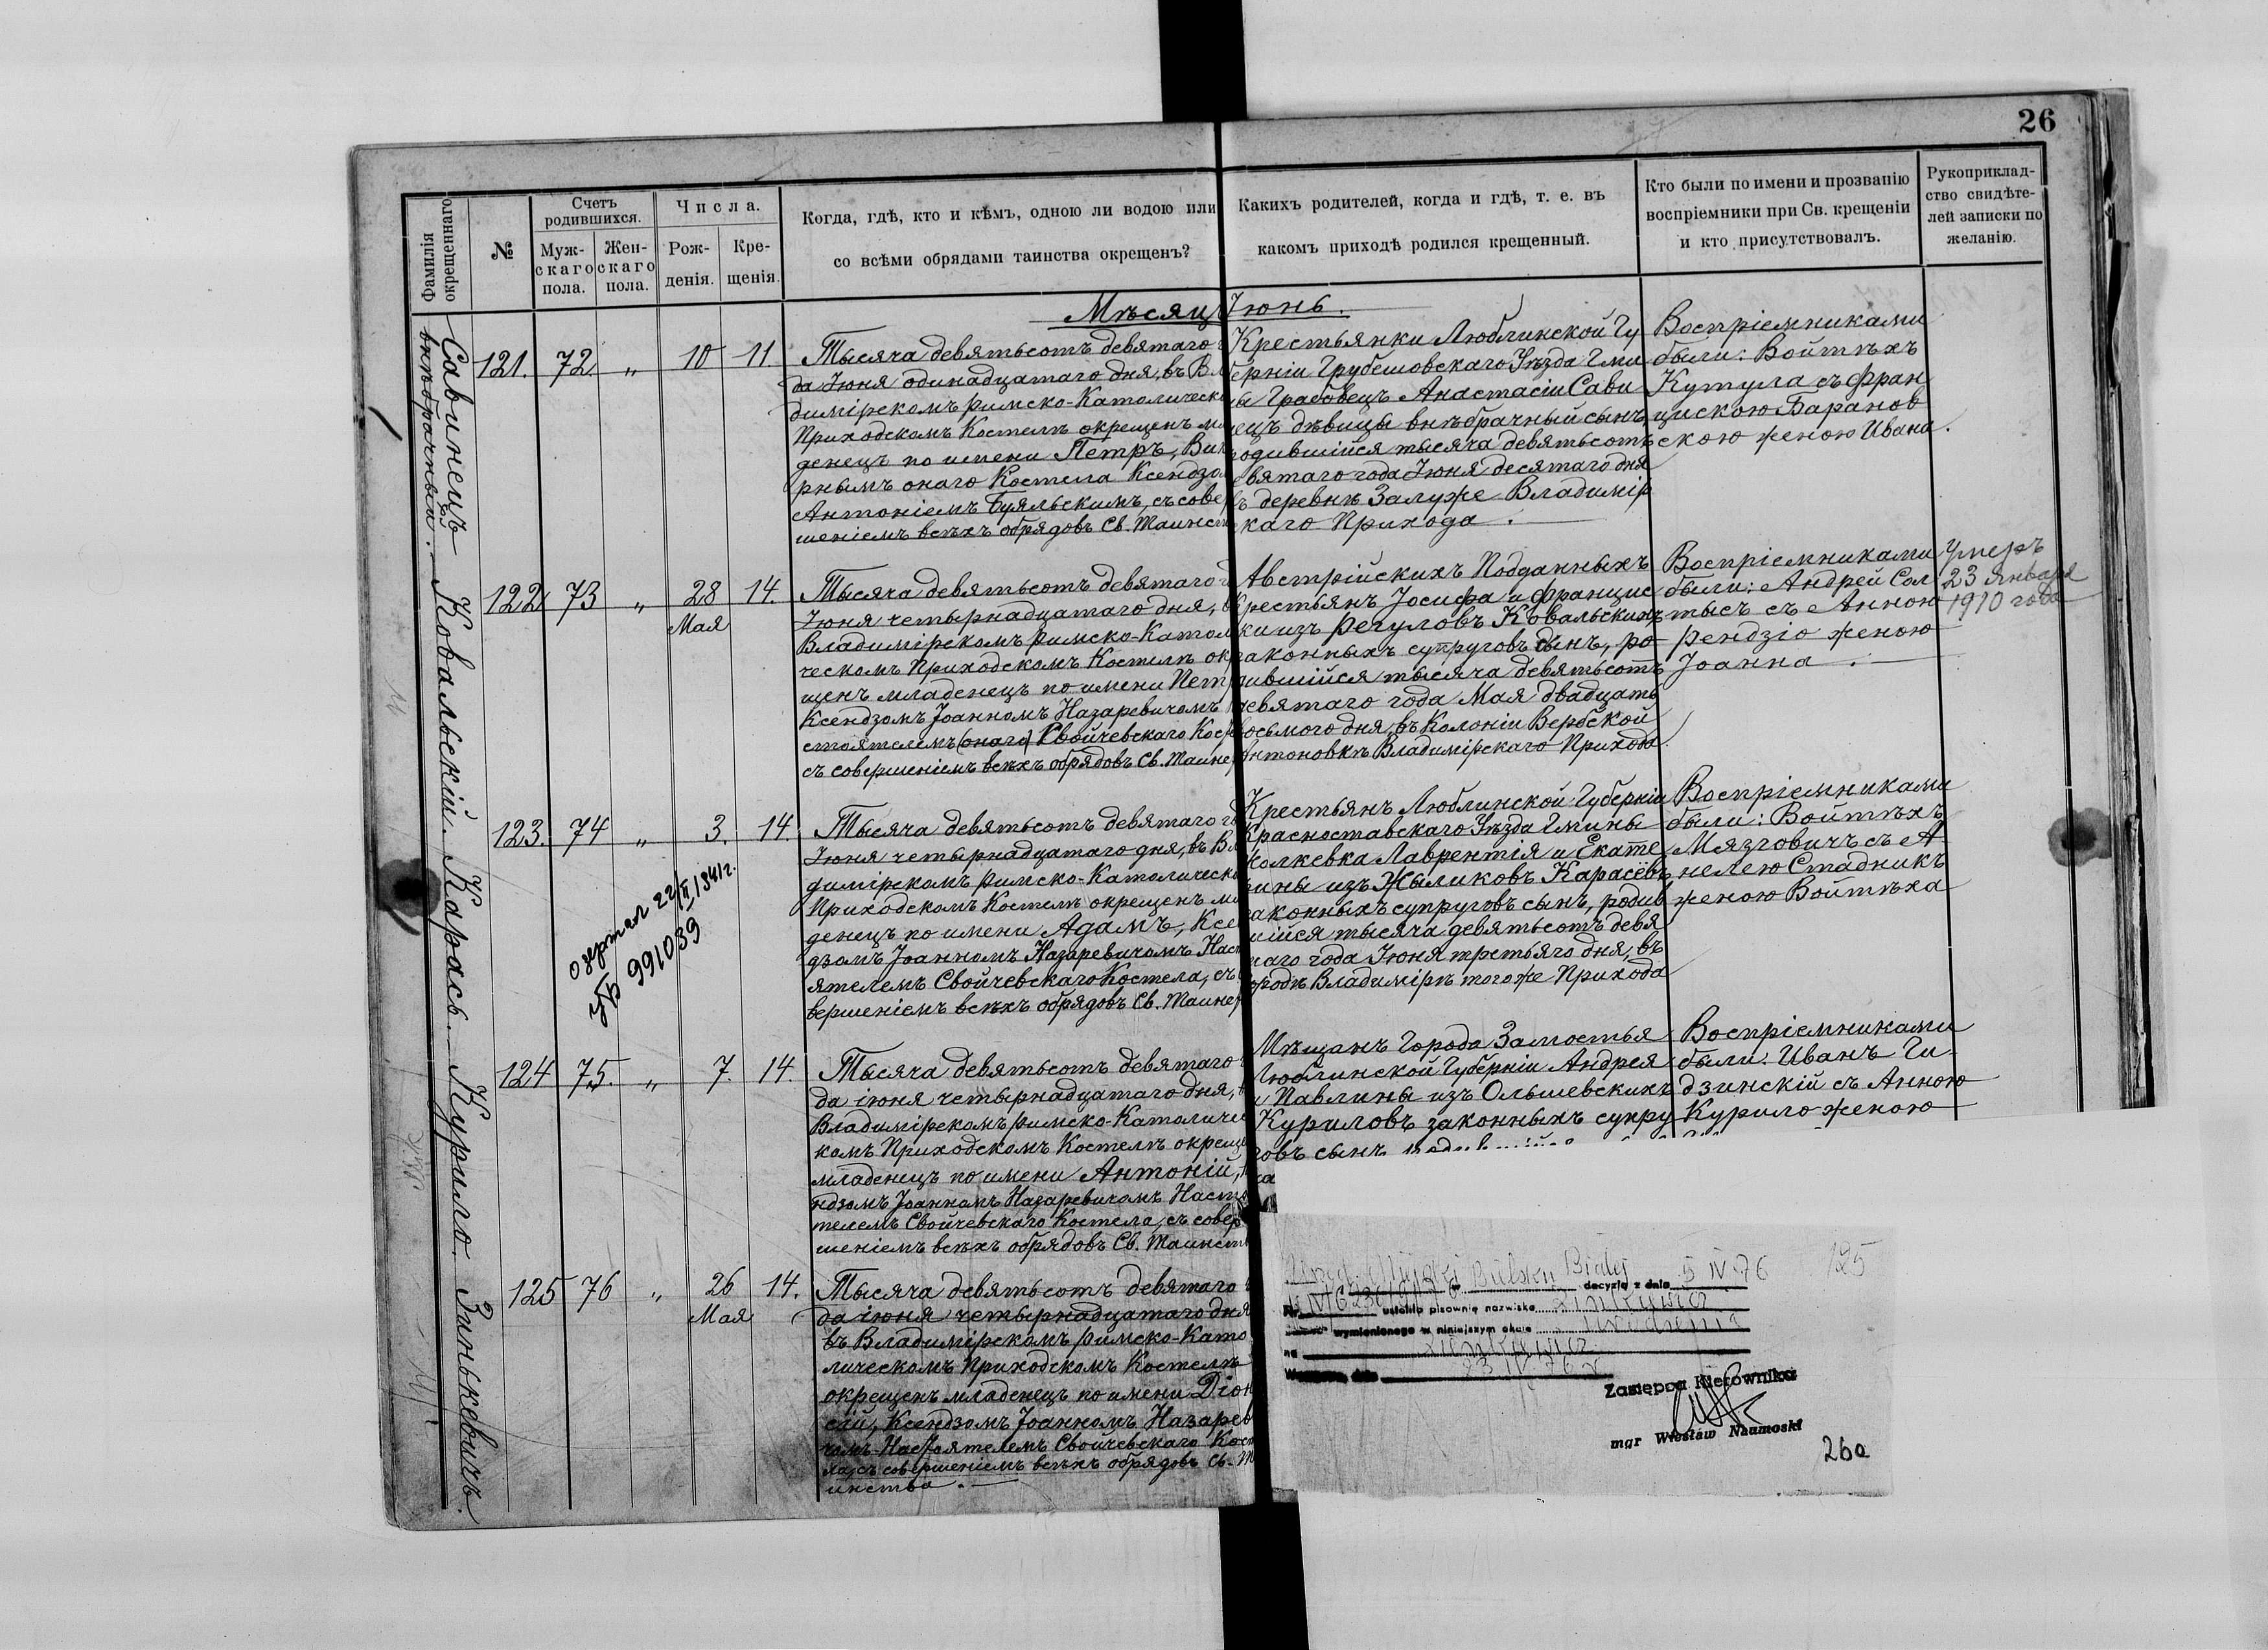 26
Фамилія окрещеннаго
№
Счетъ родившихся.
Муж-
скаго
пола.
Жен-
скаго
пола.
Числа.
Рож-
денія.
Кре-
щенія.
Когда, гдѣ, кто и кѣмъ, одною ли водою или
со всѣми обрядами таинства окрещенъ?
Какихъ родителей, когда и гдѣ, т. е. въ
какомъ приходѣ родился крещенный.
Кто были по имени и прозванію
воспріемники при Св. крещеніи
и кто присутствовалъ.
Рукоприклад-
ство свидѣте-
лей записки по
желанію.
Мѣсяцъ Іюнь.
Савинецъ
внѣбрачный.
121. 72. " 10 11
Тысяча девятьсотъ девятаго
да Іюня одинадцатаго дня, въ Вл
димірскомъ римско-католическо
Приходскомъ Костелѣ окрещенъ мл
денецъ по имени Петръ, Вик
рнымъ онаго Костела Ксендзом
Антоніемъ Буяльскимъ, съ совер
шеніемъ всѣхъ обрядовъ Св. Таинст
Крестьянки Люблинской Гу
берніи Грубешовскаго Уѣзда Гми
ны Грабовецъ Анастасіи Сави
ецъ дѣвицы внѣбрачный сынъ,
родившійся тысяча девятьсотъ
вятаго года Іюня десятаго дня
въ деревнѣ Залуже Владимір
скаго Прихода.
Воспріемниками
были: Войтѣхъ
Кутула съ Фран
цискою Баранов
скою женою Ивана.
Ковальскій.
122. 73 " 28 14.
Мая
Тысяча девятьсотъ девятаго
Іюня четырнадцатаго дня,
Владимірскомъ римско-Катол
ческомъ Приходскомъ Костелѣ окр
щенъ младенецъ по имени Петр
Ксендзомъ Іоанномъ Назаревичомъ
стоятелемъ (онаго) Свойчевскаго Кос
съ совершеніемъ всѣхъ обрядовъ Св. Таинс
Австрійскихъ Подданныхъ
крестьянъ Іосифа и Францис
ки изъ Регуловъ Ковальскихъ
законныхъ супруговъ сынъ, ро-
дившійся тысяча девятьсотъ
девятаго года Мая двадцать
восьмого дня, въ Колоніи Вербской
Антоновкѣ Владимірскаго Прихода.
Воспріемниками
были: Андрей Сол
тысъ съ Анною
Рендзіо женою
Іоанна.
Умеръ
23 Января
1910 года
Карась.
123. 74 " 3. 14.
Тысяча девятьсотъ девятаго го
Іюня четырнадцатаго дня, въ Вл
димірскомъ римско-католическо
Приходскомъ Костелѣ окрещенъ мл
денецъ по имени Адамъ, Ксе
дзомъ Іоанномъ Назаревичомъ Наст
ятелемъ Свойчевскаго Костела, съ
вершеніемъ всѣхъ обрядовъ Св. Таинс
991039
Крестьянъ Люблинской Губерніи
Красноставскаго Уѣзда Гмины
Жолкевка Лаврентія и Екате
рины изъ Жыликовъ Карасёвъ
законныхъ супруговъ сынъ, родив
шійся тысяча девятьсотъ девя
таго года Іюня третьяго дня, въ
городѣ Владимірѣ тогоже Прихода
Воспріемниками
были: Войтѣхъ
Мязговичъ съ А
нелею Стадникъ
женою Войтѣха
Курило.
124 75. " 7. 14.
Тысяча девятьсотъ девятаго
да іюня четырнадцатаго дня,
Владимірскомъ римско-Католичес
комъ Приходскомъ Костелѣ окреще
младенецъ по имени Антоній,
ндзомъ Іоанномъ Назаревичомъ Насто
телемъ Свойчевскаго Костела, съ совер
шеніемъ всѣхъ обрядовъ Св. Таинст
Мѣщанъ Города Замостья
Люблинской Губерніи Андрея
и Павлины изъ Ольшевскихъ
Куриловъ законныхъ супру
говъ сынъ
Воспріемниками
были: Иванъ Ги-
дзинскій съ Анною
Курило женою
Зинькевичъ.
125 76 " 26 14.
Мая
Тысяча девятьсотъ девятаго
да іюня четырнадцатаго дня
въ Владимірскомъ римско-Като
лическомъ Приходскомъ Костелѣ
окрещенъ младенецъ по имени Діон
сій, Ксендзомъ Іоанномъ Назарев
чомъ Настоятелемъ Свойчевскаго Кост
ла, съ совершеніемъ всѣхъ обрядовъ Св. Т
инства.
125
decyzją z dnia 5 IV 76
ustaliła pisownię nazwiska
wymienionego w niniejszym akcie
na
Zastępca Kierownika
mgr Wiesław Naumoski
26a